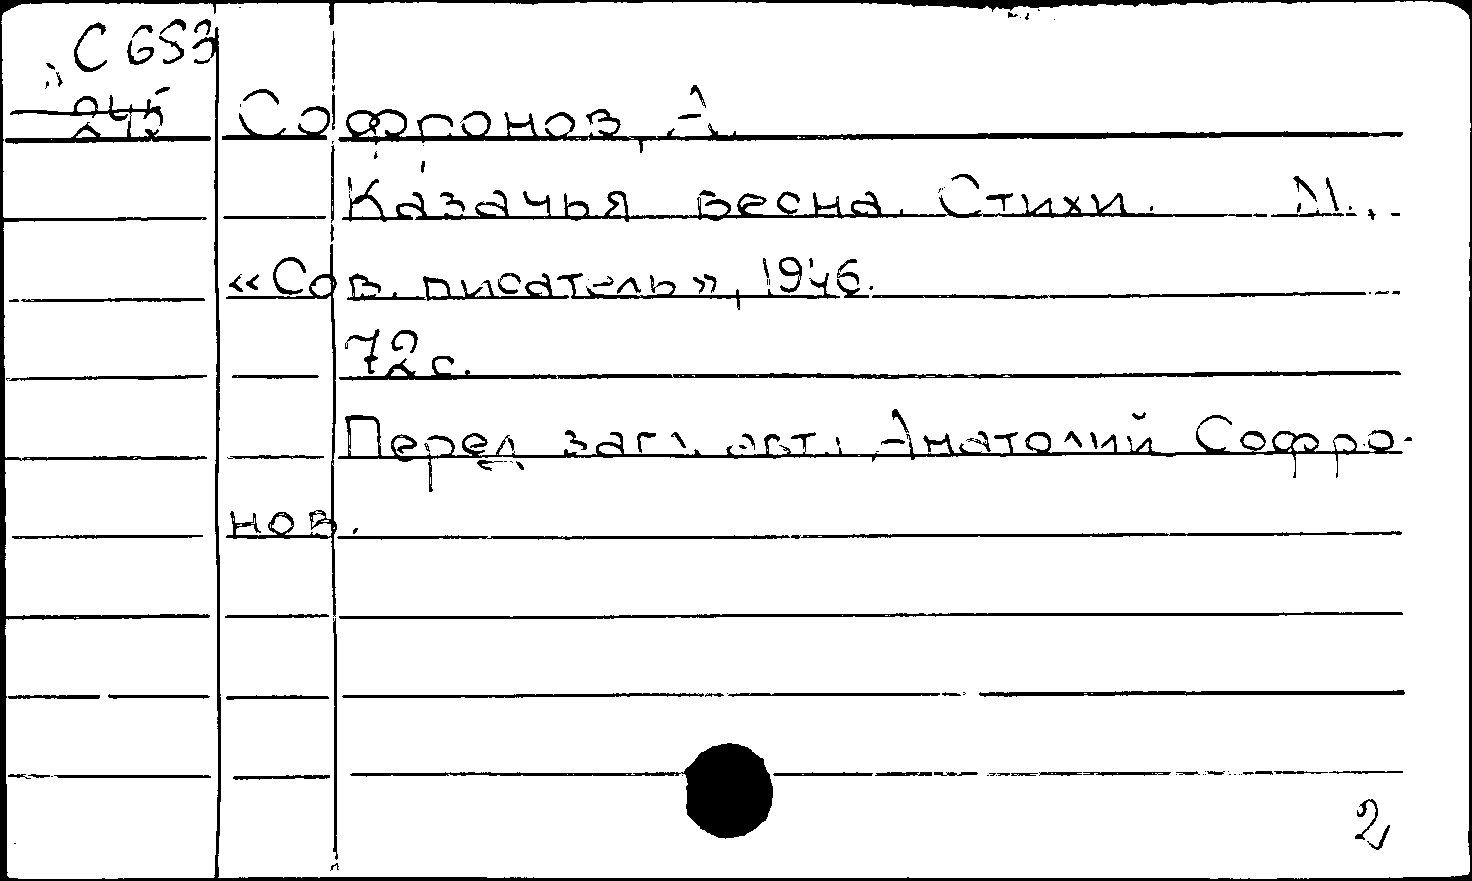 С 653
245
Софронов, А.
Казачья весна. Стихи. М.,
«Сов. писатель», 1946.
72 с.
Перед загл. авт.: Анатолий Софро-
нов.
2